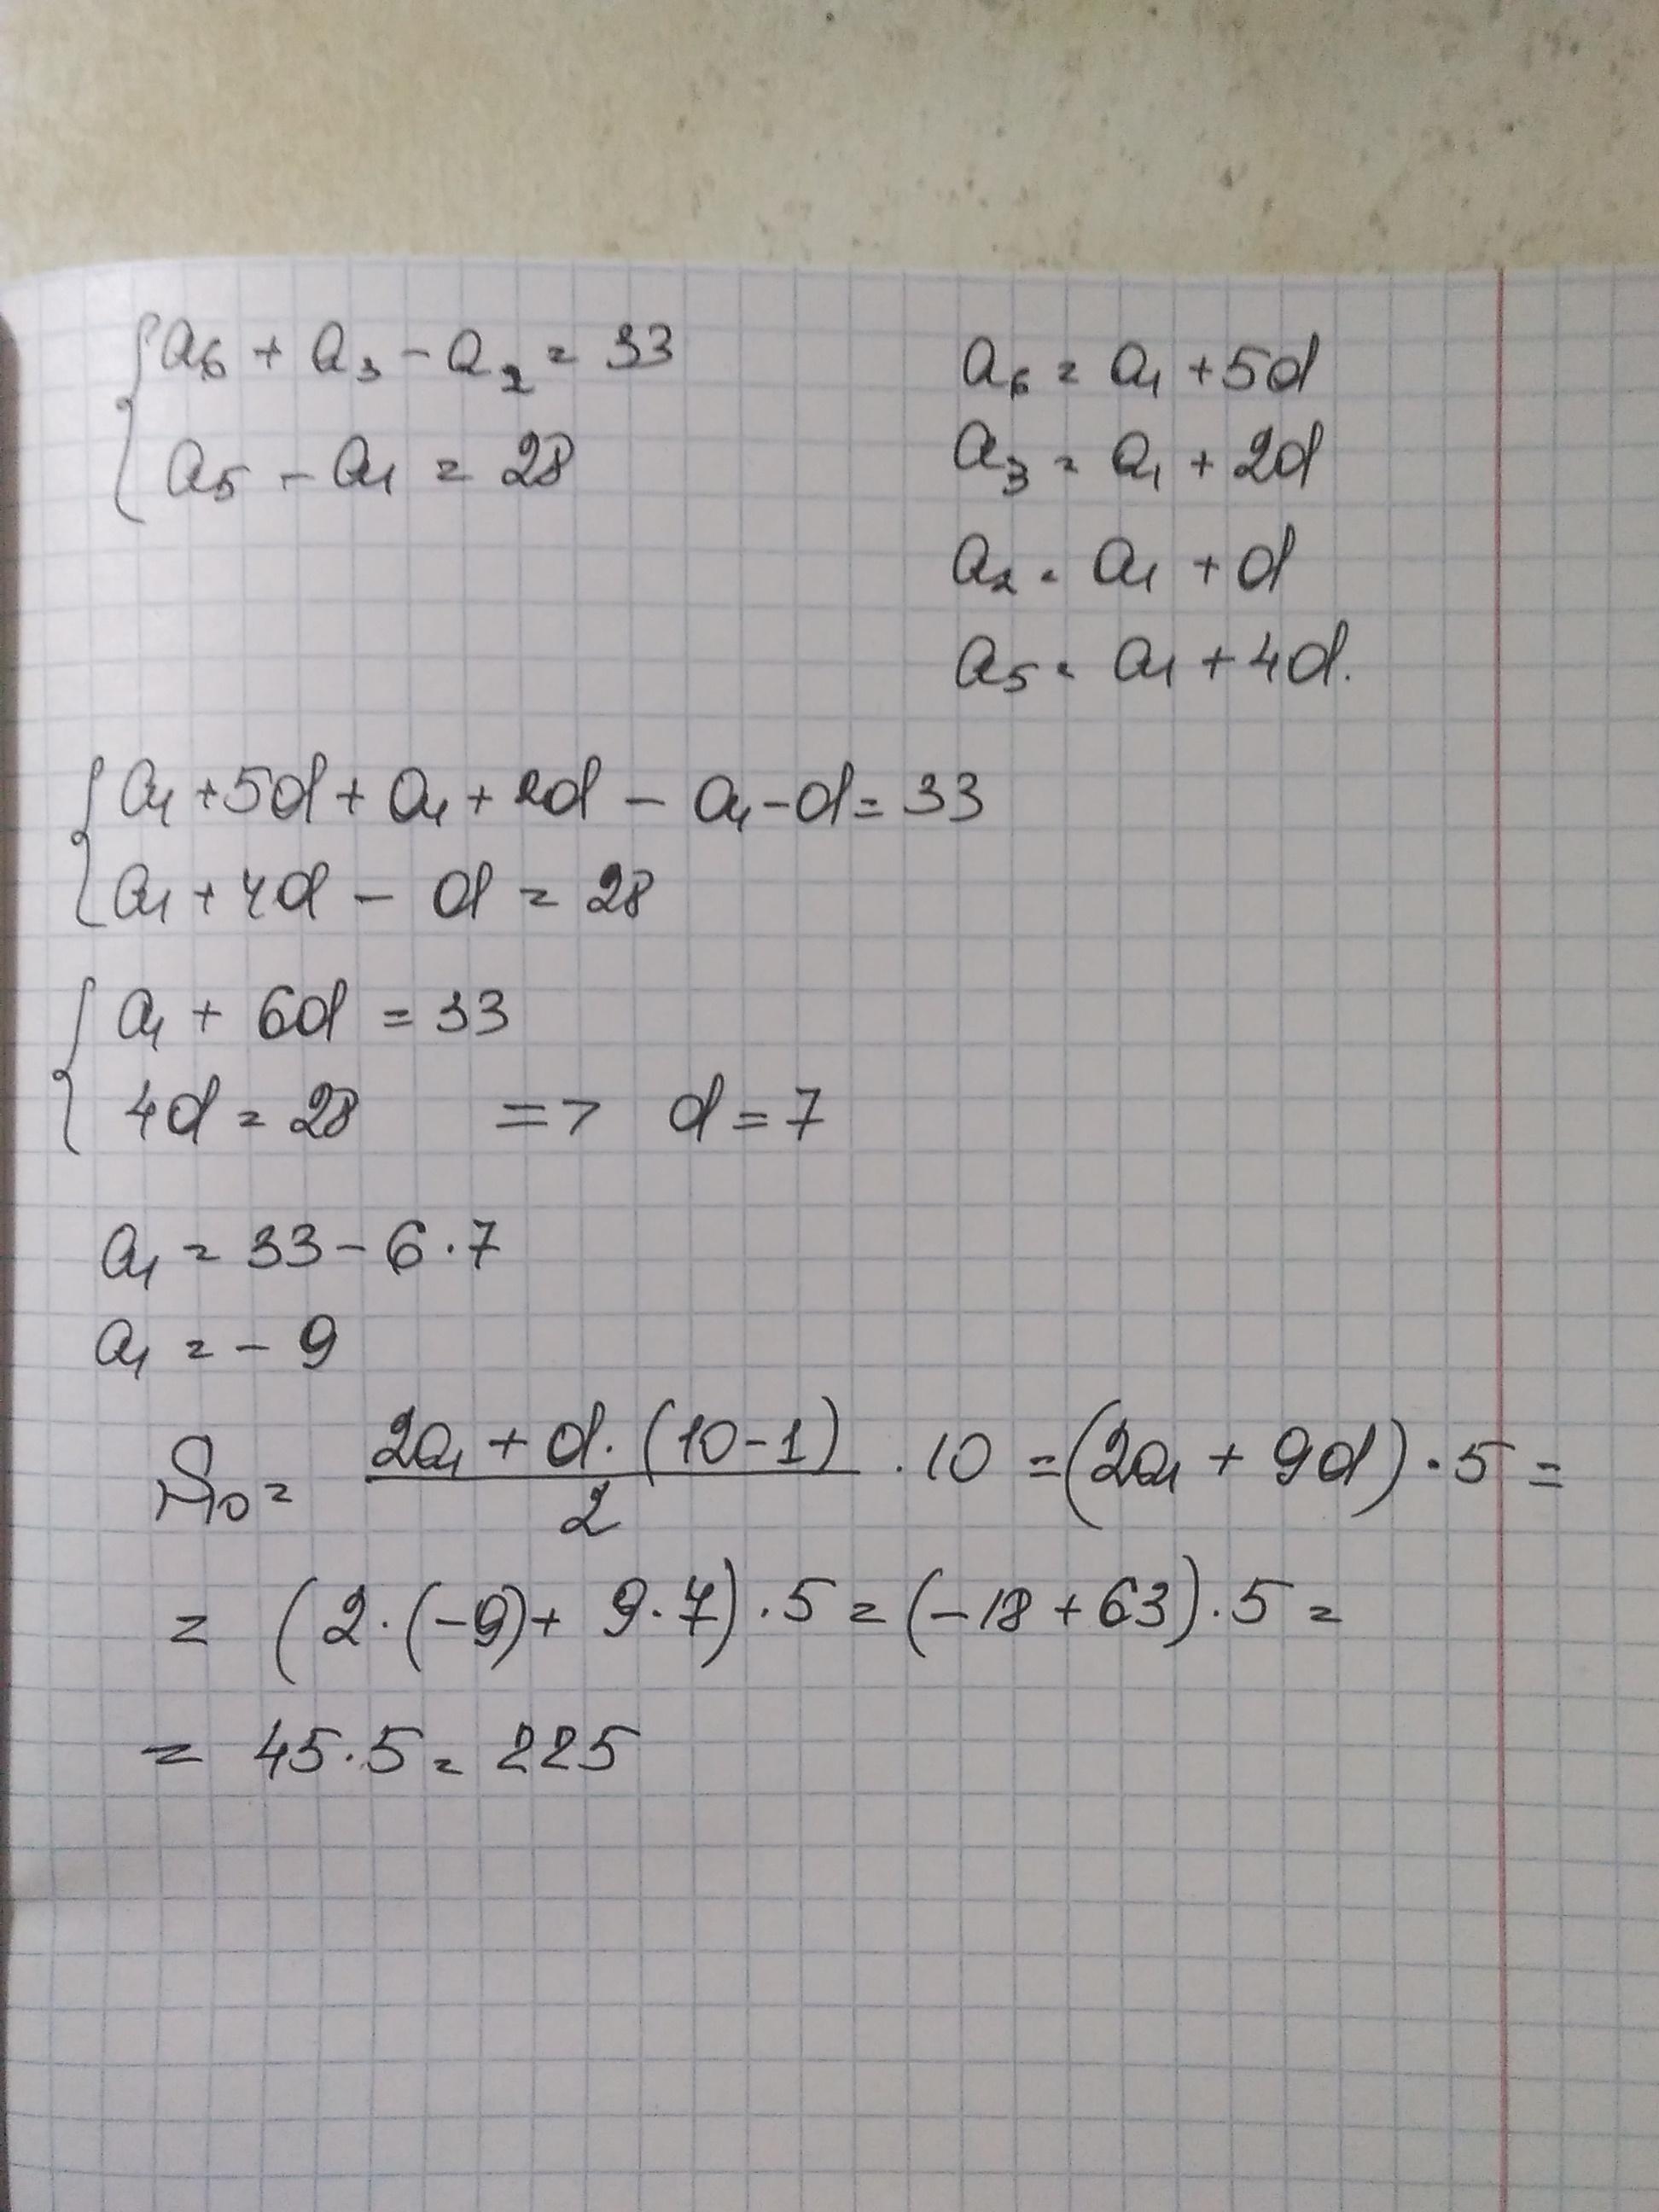 {a₆ + a₃ - a₂ = 33
a₅ - a₁ = 28
a₆ = a₁ + 5d
a₃ = a₁ + 2d
a₂ = a₁ + d
a₅ = a₁ + 4d.
{a₁ + 5d + a₁ + 2d - a₁ - d = 33
a₁ + 4d - d = 28
{a₁ + 6d = 33
4d = 28 => d = 7
a₁ = 33 - 6 · 7
a₁ = - 9
S₁₀ = (2a₁ + d · (10 - 1))/2 · 10 = (2a₁ + 9d) · 5 =
= (2 · (-9) + 9 · 7) · 5 = (-18 + 63) · 5 =
= 45 · 5 = 225